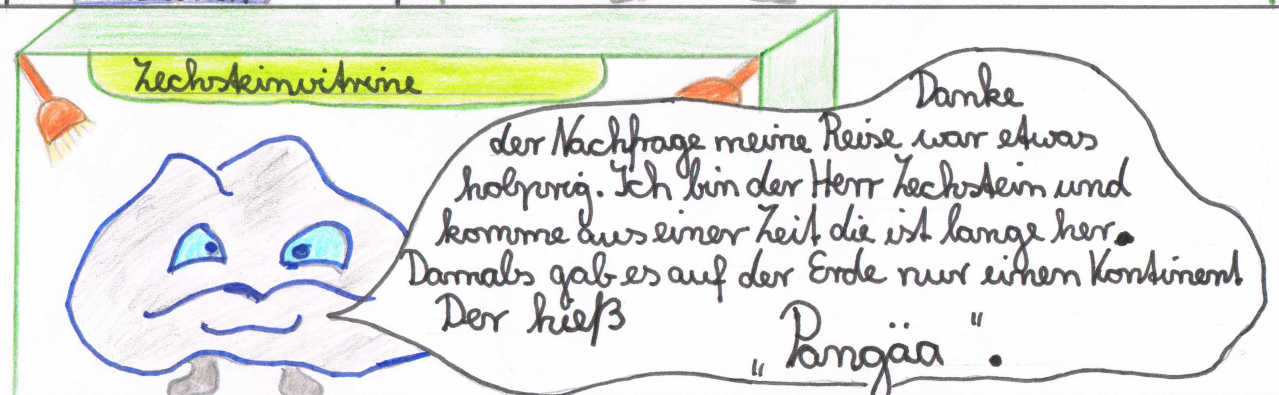 Zechsteinvitrine
Danke
der Nachfrage meine Reise war etwas
holprig. Ich bin der Herr Zechstein und
komme aus einer Zeit die ist lange her.
Damals gab es auf der Erde nur einen Kontinent
Der hieß
„Pangäa“.